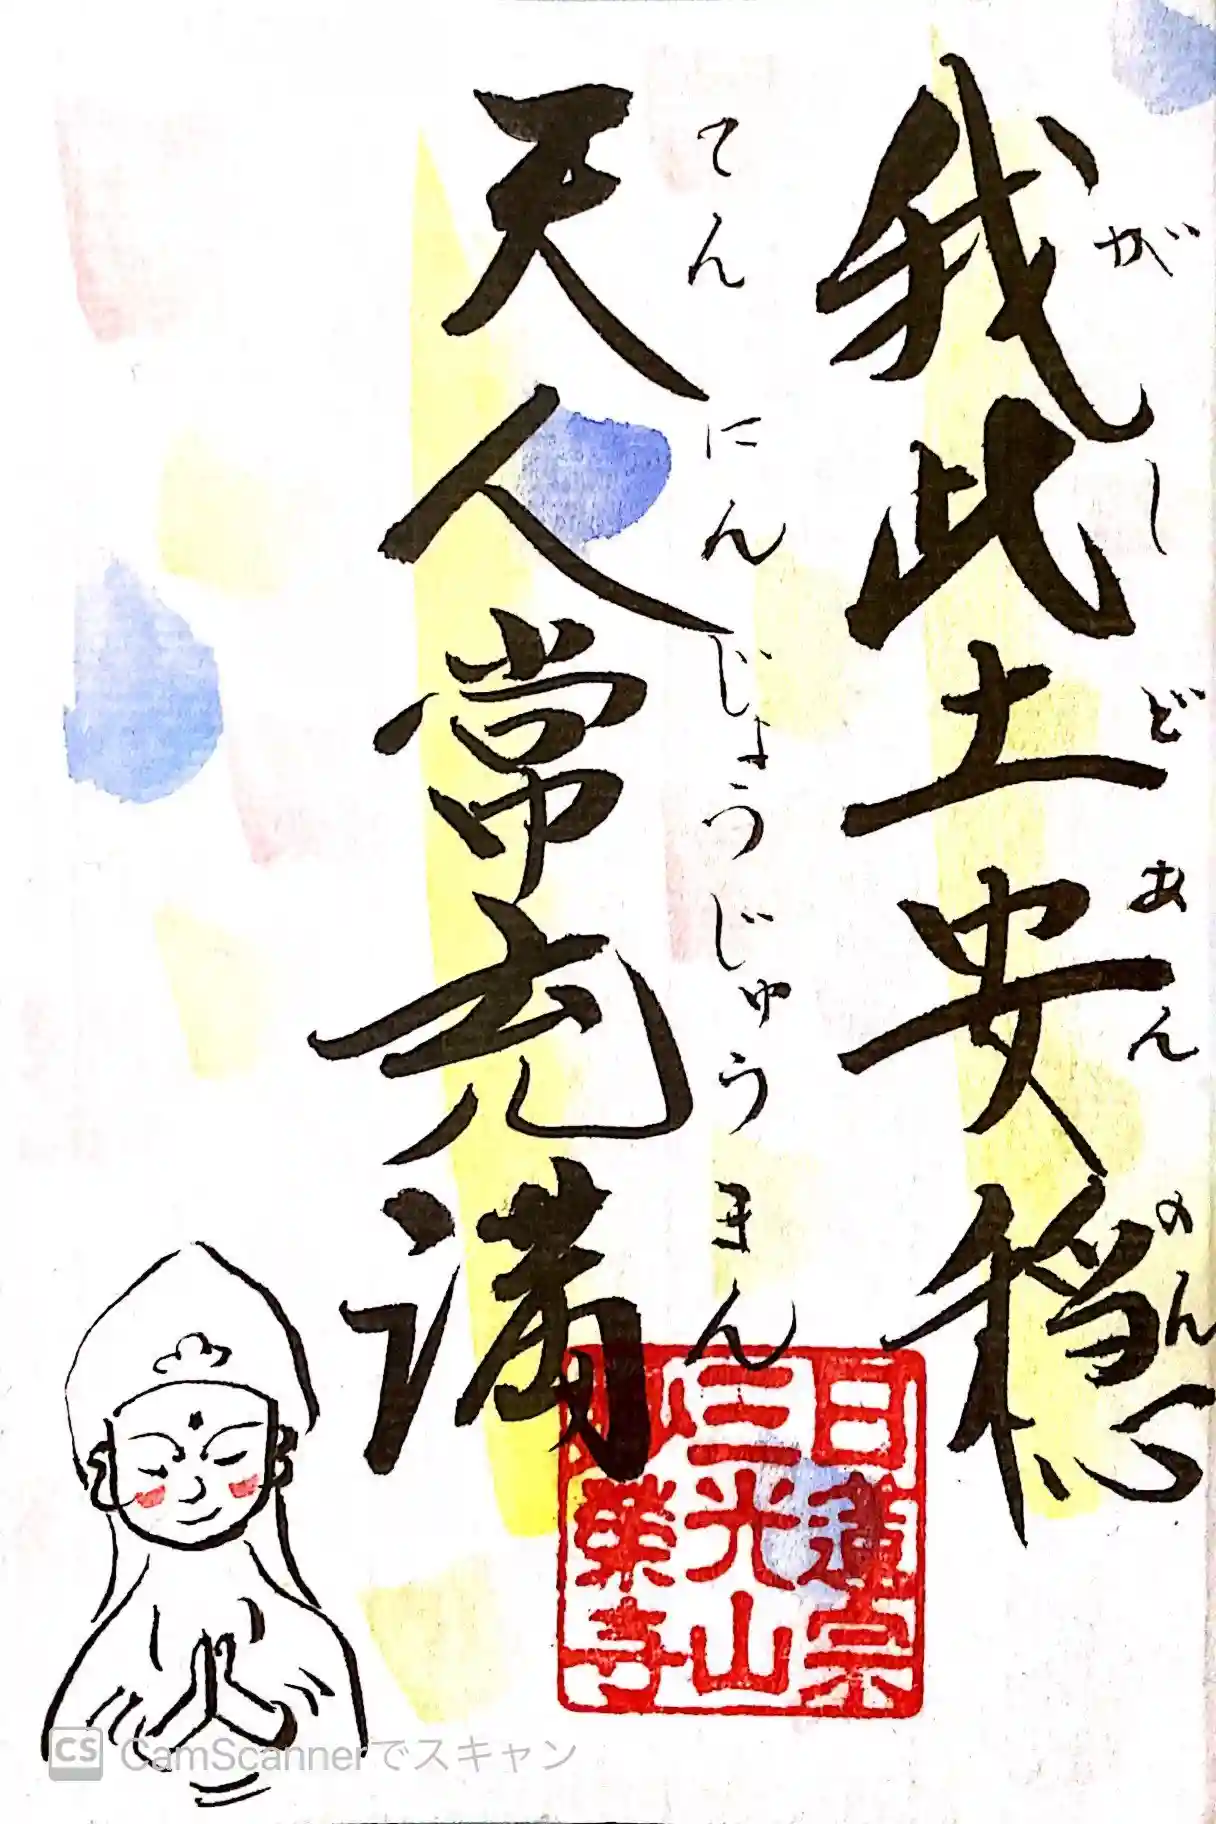 我此土安穏
がしどあんのん
天人常充満
てんにんじょうじゅうまん
日蓮宗
三光山
栄寺
CS CamScannerでスキャン